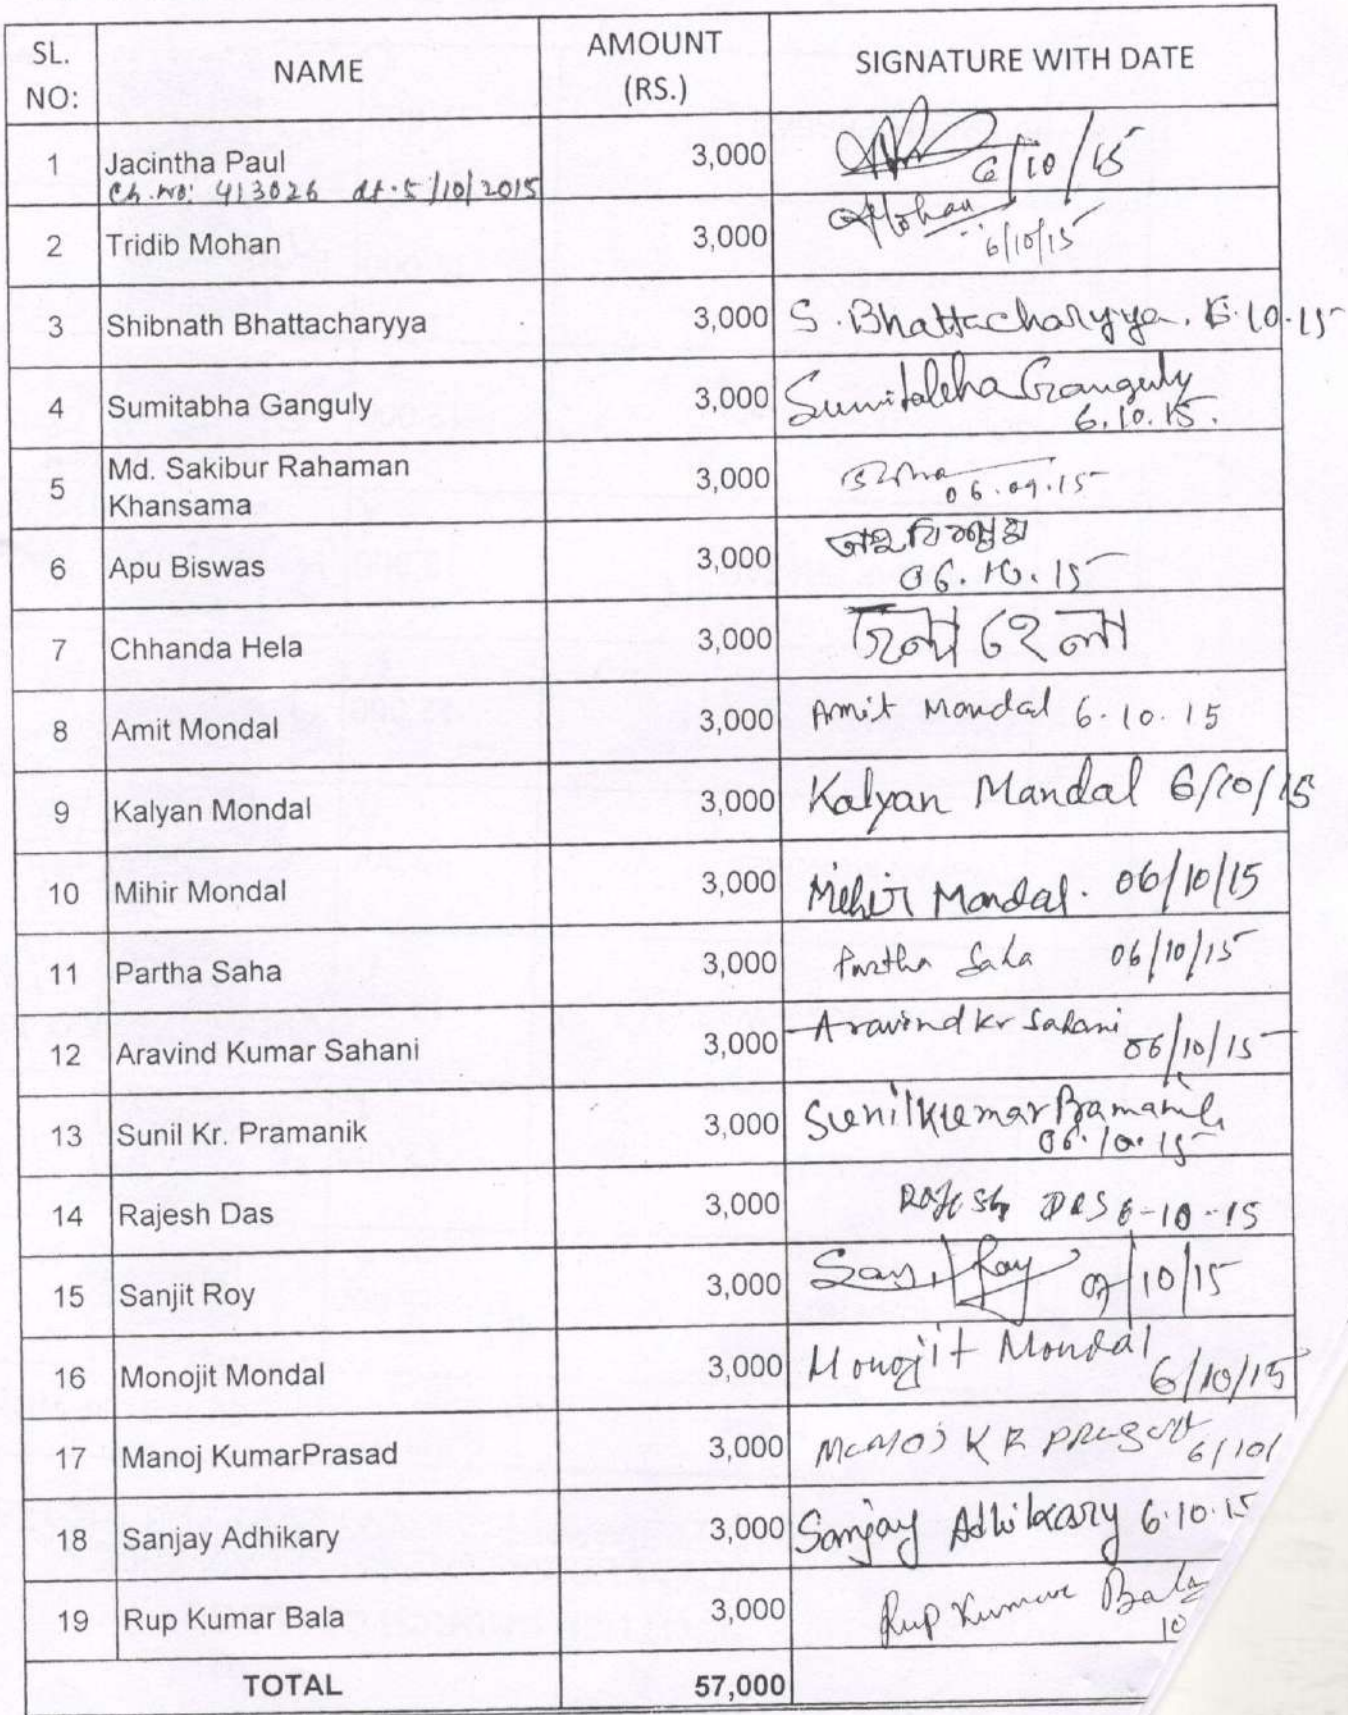 SL. NO: NAME AMOUNT (RS.) SIGNATURE WITH DATE
1 Jacintha Paul 3,000 6/10/15
Ch. No: 413026 dt. 5/10/2015
2 Tridib Mohan 3,000 Mohan
6/10/15
3 Shibnath Bhattacharyya 3,000 S. Bhattacharyya. 6.10.15
4 Sumitabha Ganguly 3,000 Sumitabha Ganguly
6.10.15.
5 Md. Sakibur Rahaman
Khansama 3,000 06.09.15
6 Apu Biswas 3,000
06.10.15
7 Chhanda Hela 3,000 হেলা
8 Amit Mondal 3,000 Amit Mondal 6.10.15
9 Kalyan Mondal 3,000 Kalyan Mandal 6/10/15
10 Mihir Mondal 3,000 Mihir Mondal. 06/10/15
11 Partha Saha 3,000 Partha Saha 06/10/15
12 Aravind Kumar Sahani 3,000 Aravind Kr Sahani 06/10/15
13 Sunil Kr. Pramanik 3,000 Sunil Kumar Pramanik
06.10.15
14 Rajesh Das 3,000 Rajesh Das 6-10-15
15 Sanjit Roy 3,000 Roy 10/15
16 Monojit Mondal 3,000 Monojit Mondal
6/10/15
17 Manoj KumarPrasad 3,000 Manoj KR Prasad
6/10/
18 Sanjay Adhikary 3,000 Sanjay Adhikary 6.10.15
19 Rup Kumar Bala 3,000 Rup Kumar Bala
10
TOTAL 57,000